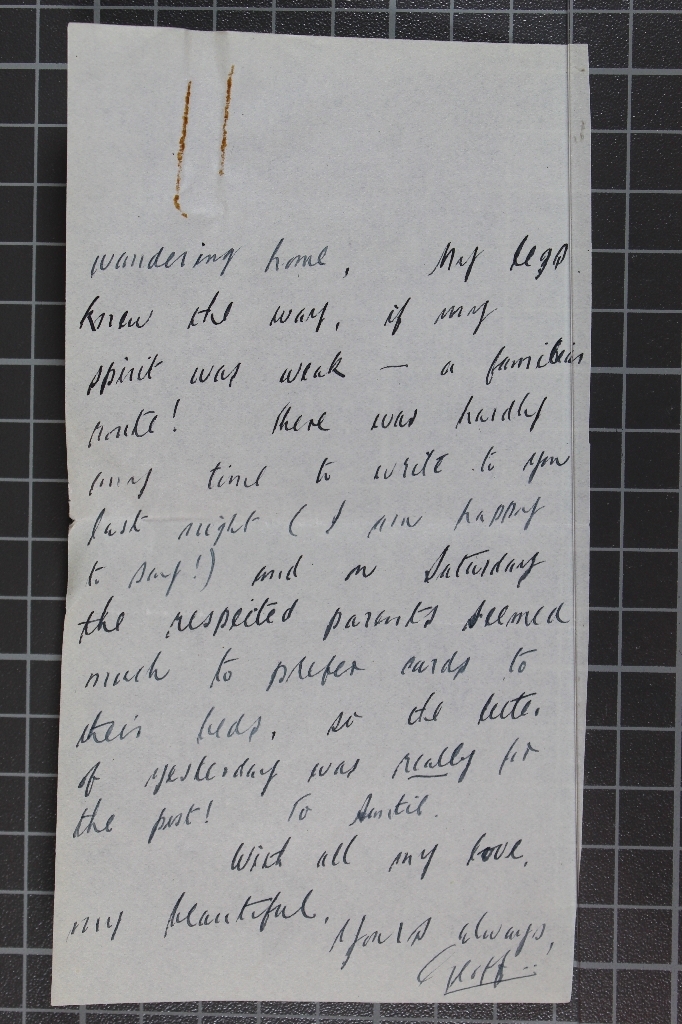 wandering home. My legs
knew the way, if my
spirit was weak – a familiar
route! There was hardly
any time to write to you
last night (I am happy
to say!) and on Saturday
the respected parents seemed
much to prefer cards to
their beds, so the letter
of yesterday was really for
the post! To Auntie.
With all my love,
my beautiful.
Yours always,
Geoff